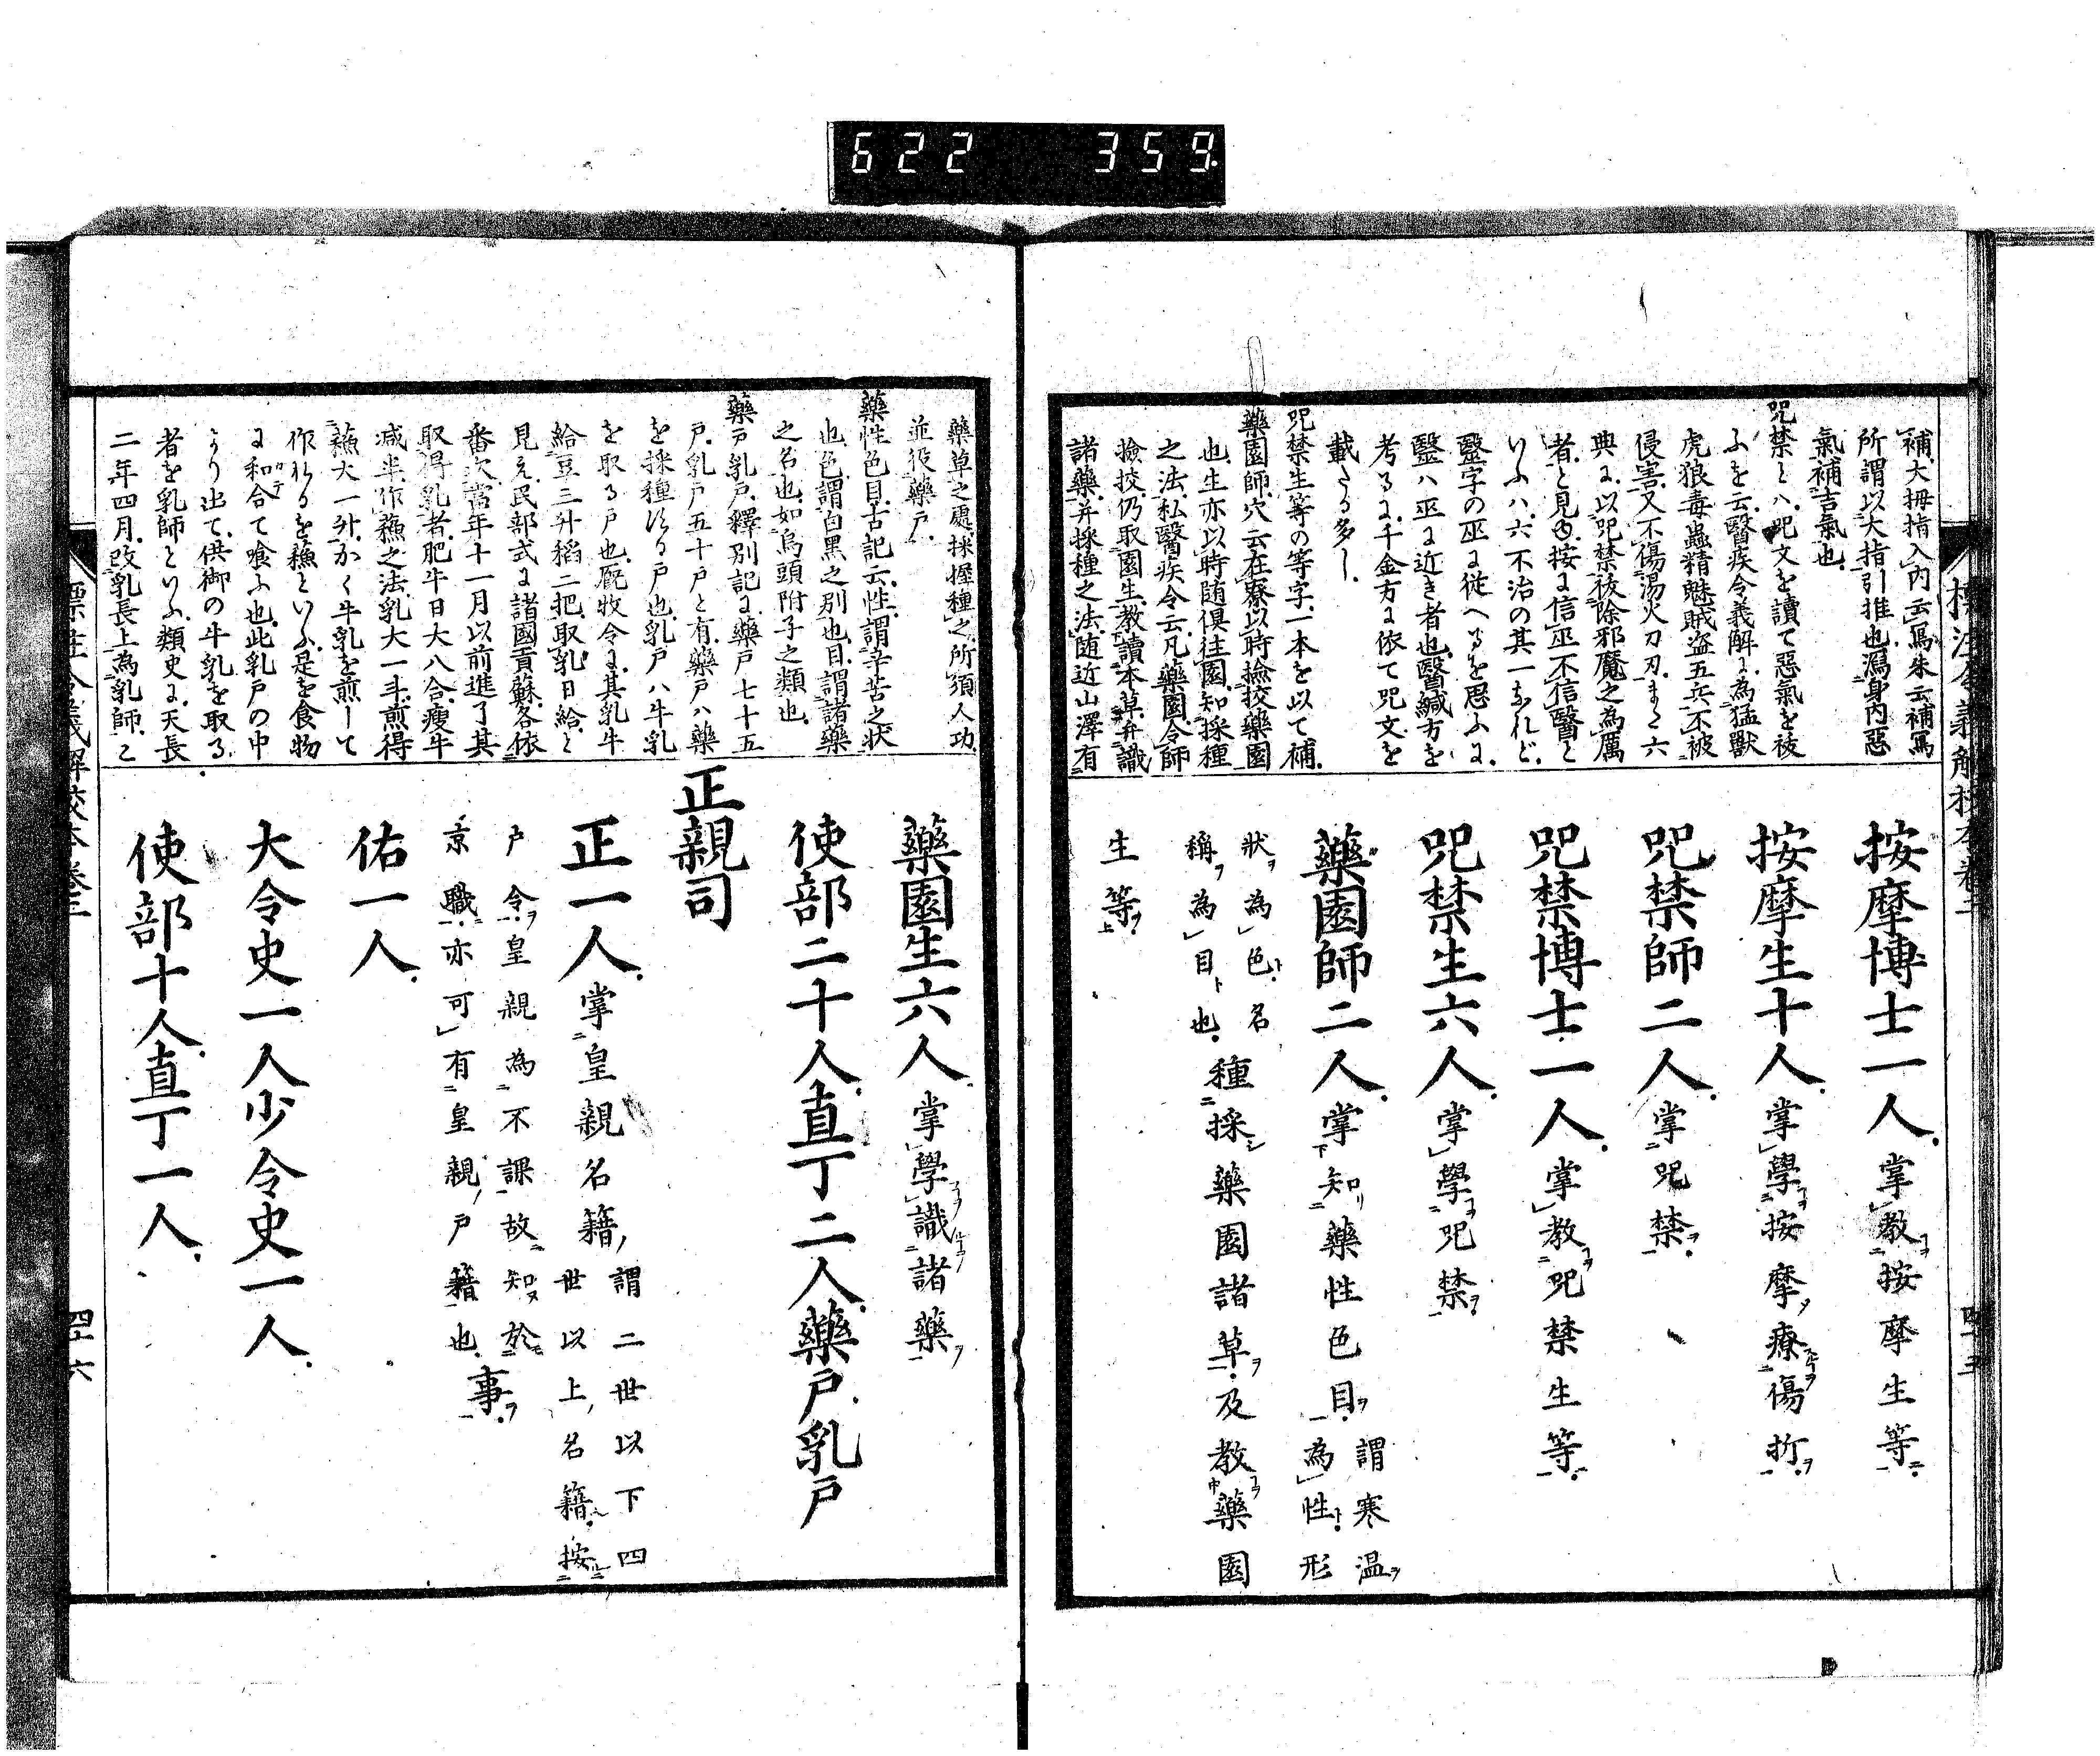 622 359
補大拇指入内云寫朱云補寫
所謂以大指引推也瀉身内惡
氣補吉氣也
咒禁とハ咒文を讀て惡氣を祓
ふを云醫疾令義解に為猛獸
虎狼毒蟲精魅賊盗五兵不被
侵害又不傷湯火刀刃また六
典に以咒禁祓除邪魔之為厲
者と見ゆ按に信巫不信醫と
いふハ六不治の其一なれど
毉字の巫に従へるを思ふに
毉ハ巫に近き者也醫緘方を
考るに千金方に依て咒文を
載たる多し
咒禁生等の等字一本を以て補
藥園師穴云在寮以時撿挍藥園
也生亦以時随倶往園知採種
之法私醫疾令云凡藥園令師
撿挍仍取園生教讀本草弁識
諸藥并採種之法随近山澤有
按摩博士一人掌教按摩生等
按摩生十人掌學按摩療傷折
咒禁師二人掌咒禁
咒禁博士一人掌教咒禁生等
咒禁生六人掌學咒禁
藥園師二人掌知藥性色目謂寒温為性形
狀為色名稱為目也種採藥園諸草及教藥園
生等
藥草之處採握種之所須人功
並役藥戸
藥性色目古記云性謂辛苦之状
也色謂白黒之別也目謂諸藥
之名也如烏頭附子之類也
藥戸乳戸釋別記に藥戸七十五
戸乳戸五十戸と有藥戸ハ藥
を採種する戸也乳戸ハ牛乳
を取る戸也厩牧令に其乳牛
給豆三升稲二把取乳日給と
見え民部式に諸國貢蘇各依
番次當年十一月以前進了其
取得乳者肥牛日大八合痩牛
减半作蘓之法乳大一斗煎得
蘓大一升かく牛乳を煎して
作れるを蘓といふ是を食物
に和合て喰ふ也此乳戸の中
より出て供御の牛乳を取る
者を乳師といふ類史に天長
二年四月改乳長上為乳師と
藥園生六人掌學識諸藥
使部二十人直丁二人藥戸乳戸
正親司
正一人掌皇親名籍謂二世以下四世以上名籍按
戸令皇親為不課故知於京職亦可有皇親戸籍也事
佑一人
大令史一人少令史一人
使部十人直丁一人
四十六